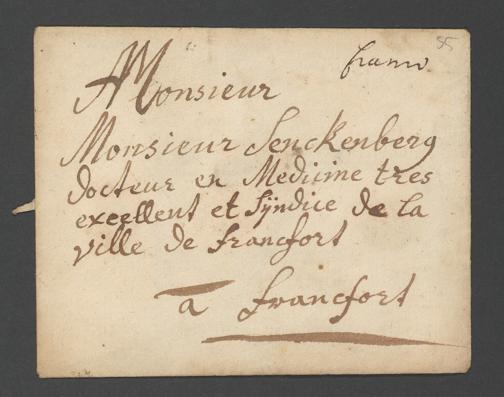 A Monsieur
franco
55
Monsieur Senckenberg
docteur en Medicine tres
excellent et Sÿndice de la
ville de francfort
a francfort